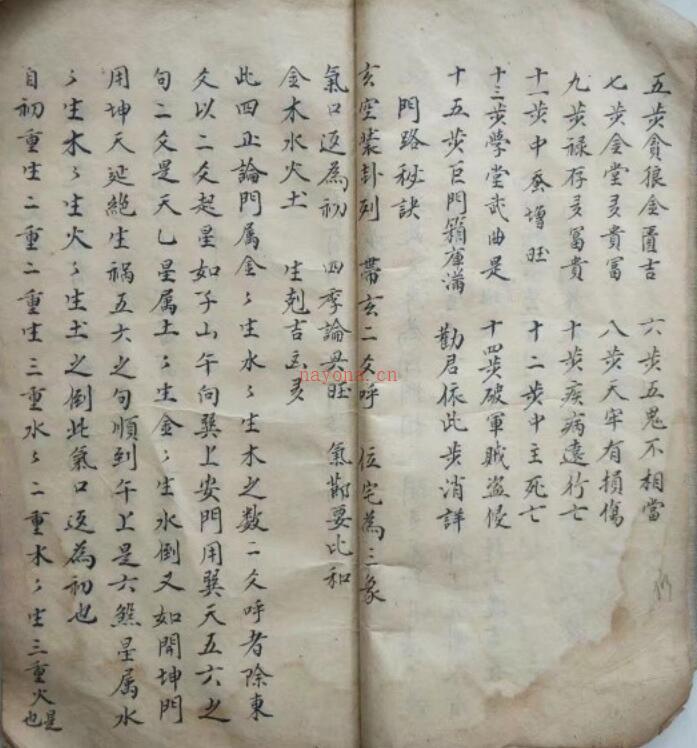 五步貪狼金匱吉 六步五鬼不相當
七步金堂多貴富 八步天牢有損傷
九步禄存多冨貴 十步疾病遠行亡
十一步中蚕增旺 十二步中主死亡
十三步學堂武曲是 十四步破軍賊盗侵
十五步巨門箱庫滿 勸君依此步消詳
門路秘訣
玄空装卦列 帶玄二爻呼 位宅為三象
氣口返為初 四季論 旺 氣 要比和
金木水火土 生剋吉 多
此四正論門属金〻生水〻生木之数二爻呼者除東
爻以二爻起星如子山午向巽上安門用巽天五六之
句二爻是天乙星属土〻生金〻生水倒又如開坤門
用坤天延絶生禍五六之句順到午上是六煞星属水
〻生木〻生火〻生土之倒此氣口返為初也
自初重生二重二重生三重水〻二重木〻生三重火是也
nayona.cn